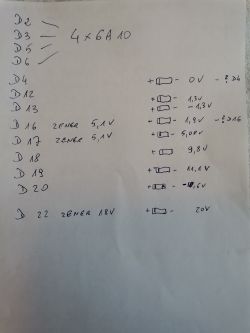 D2
D3
D5
D6
4 x 6A10
D4 + - 0V - ? D4
D12 + - 1,3V
D13 + - -1,3V
D16 ZENER 5,1V + - 1,9V - ? D16
D17 ZENER 5,1V + - 5,08V
D18 + - 9,8V
D19 + - 11,1V
D20 + -
D22 ZENER 18V + - 20V